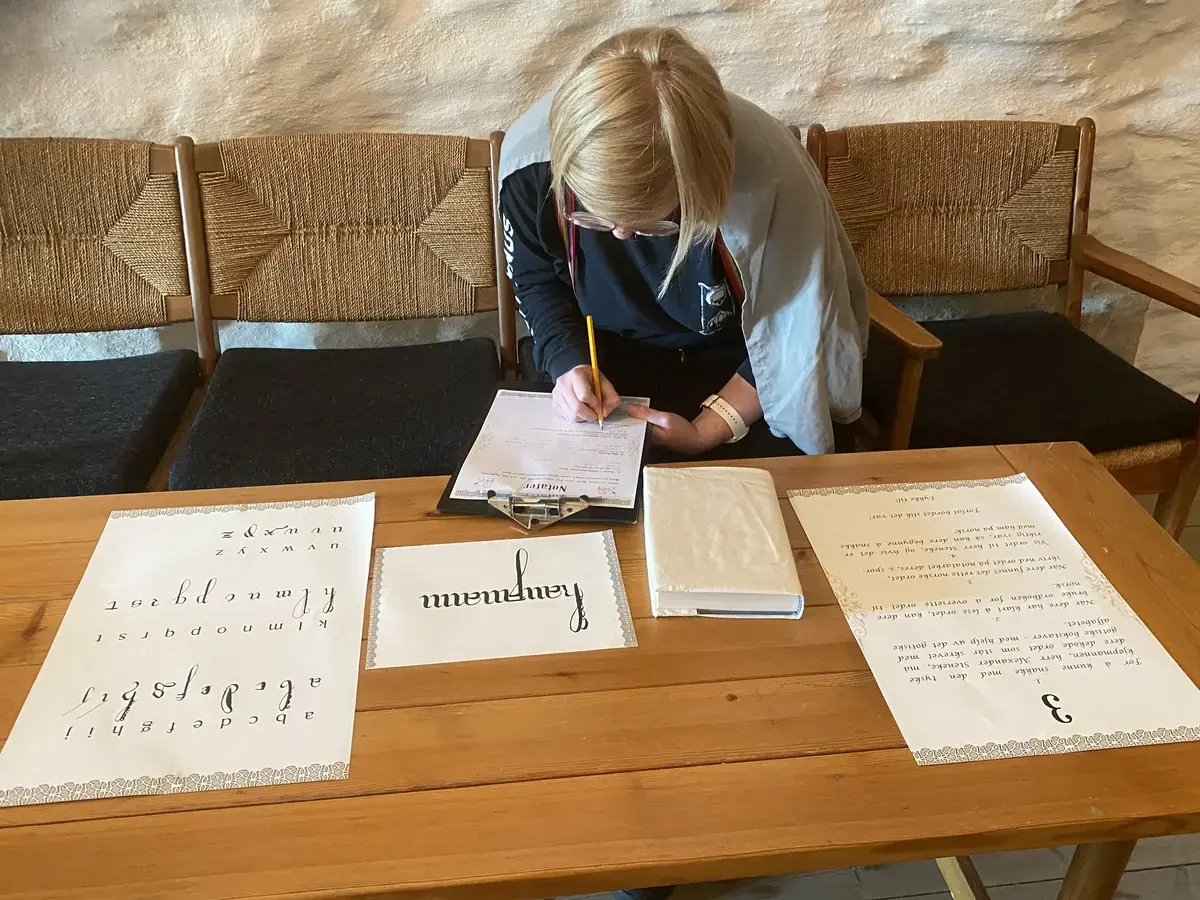 a b c d e f g h i j
a b c d e f g h i j
k l m n o p q r s t
k l m n o p q r s t
u v w x y z
u v w x y z
kaufmann
Notater
3
1.
For å kunne snakke med den tyske
kjøpmannen, herr Alexander Steneke, må
dere dekode ordet som står skrevet med
gotiske bokstaver - med hjelp av det gotiske
alfabetet.
2.
Når dere har klart å lese ordet, kan dere
bruke ordboken for å oversette ordet til
norsk.
3.
Når dere har funnet det rette norske ordet,
skriv ned ordet på notatarket deres, 3. spor.
4.
Vis ordet til herr Steneke, og hvis det er
riktig svar, så kan dere begynne å snakke
med ham på norsk!
Forlat bordet slik det var!
Lykke til